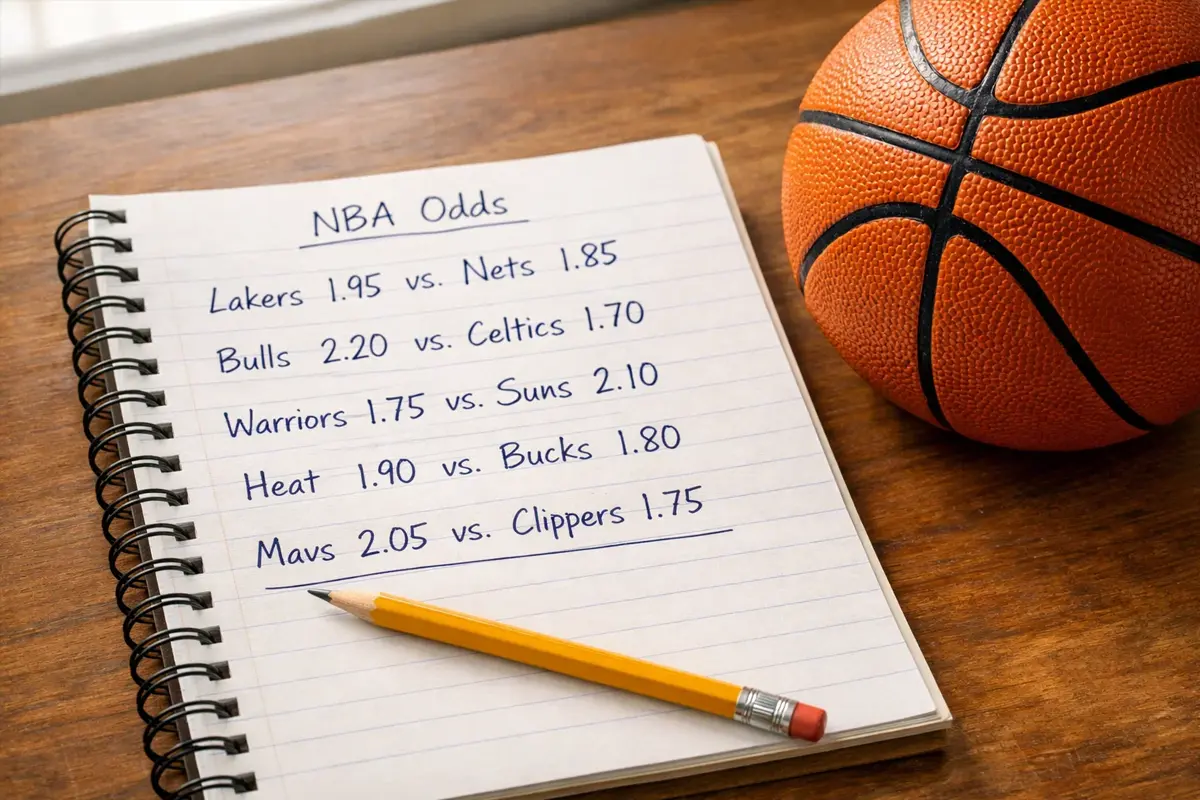 NBA Odds
Lakers 1.95 vs. Nets 1.85
Bulls 2.20 vs. Celtics 1.70
Warriors 1.75 vs. Suns 2.10
Heat 1.90 vs. Bucks 1.80
Mavs 2.05 vs. Clippers 1.75